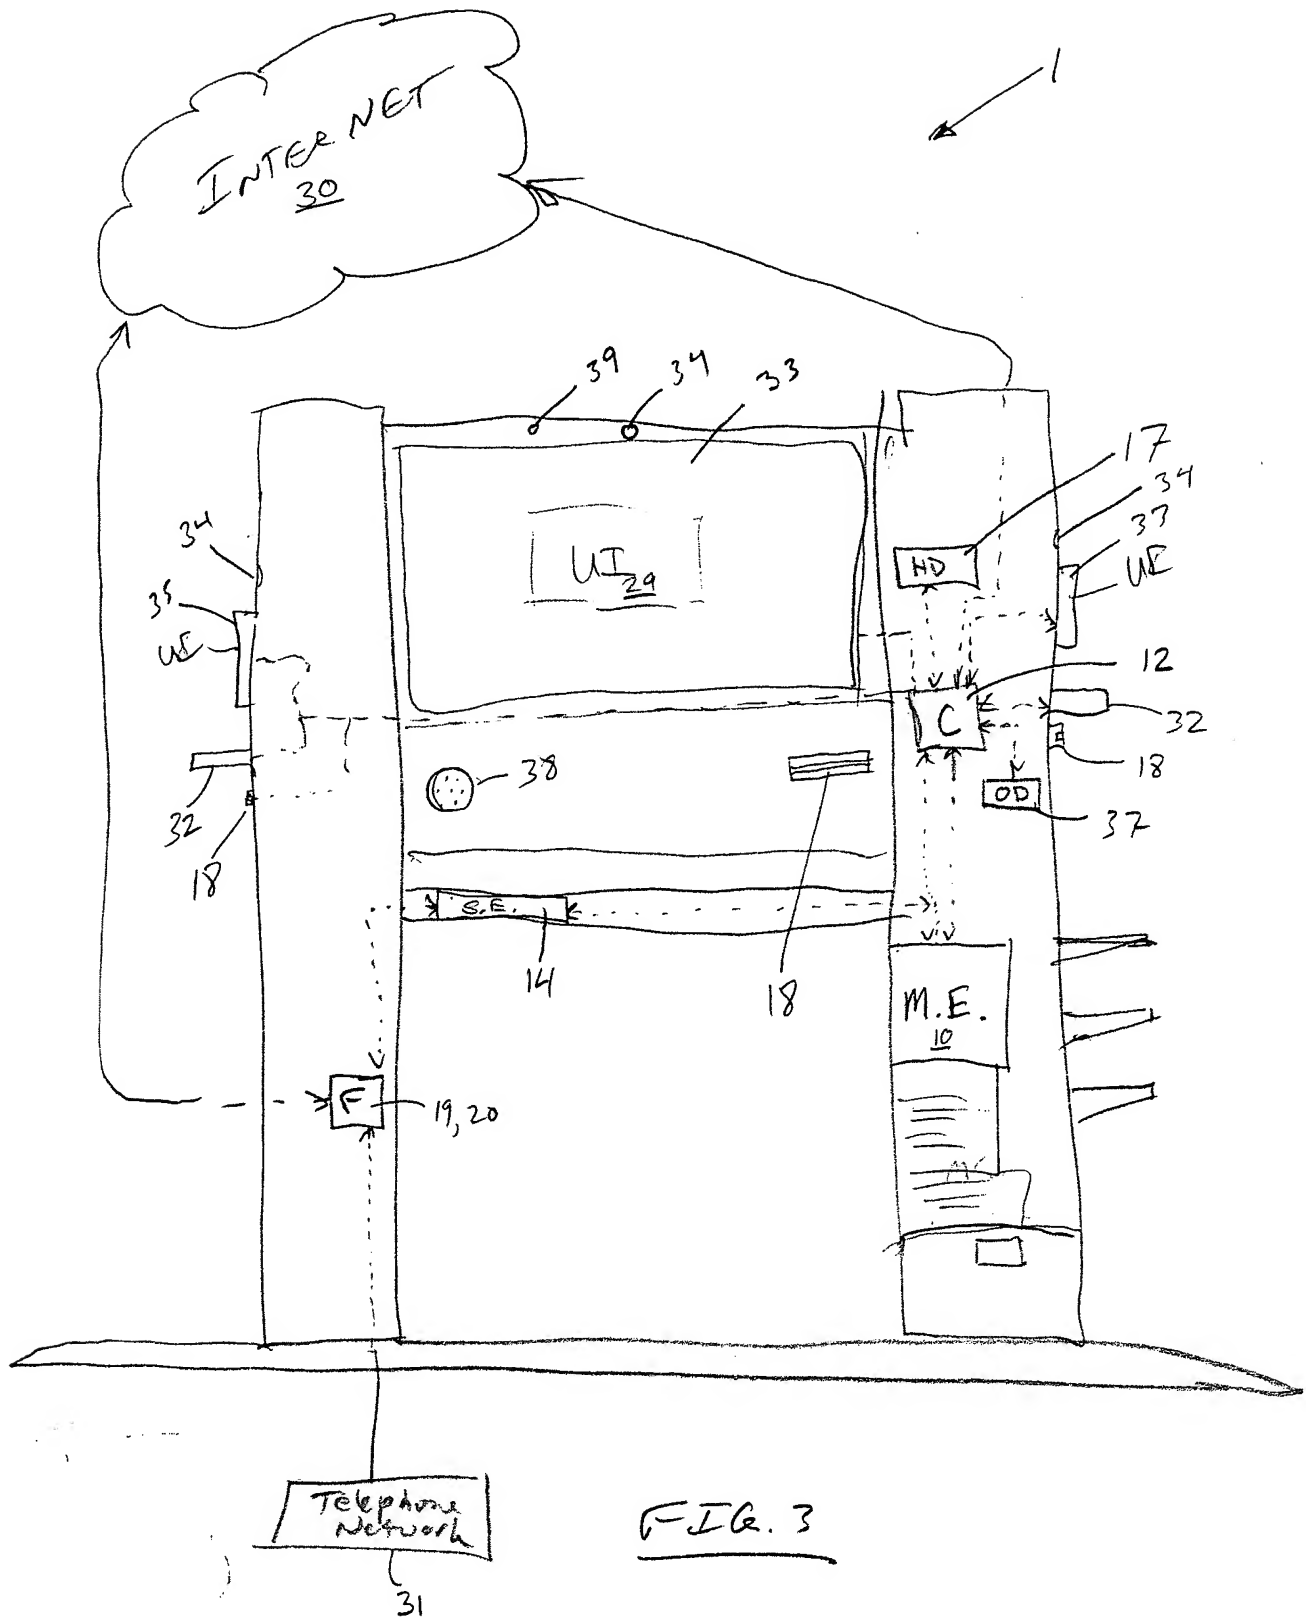 1
INTERNET
30
39
34
33
17
34
33
UI
34
35
UI
UI
29
HD
12
C
32
18
OD
37
38
32
18
S.E.
14
18
M.E.
10
F
19,20
Telephone
Network
31
FIG. 3